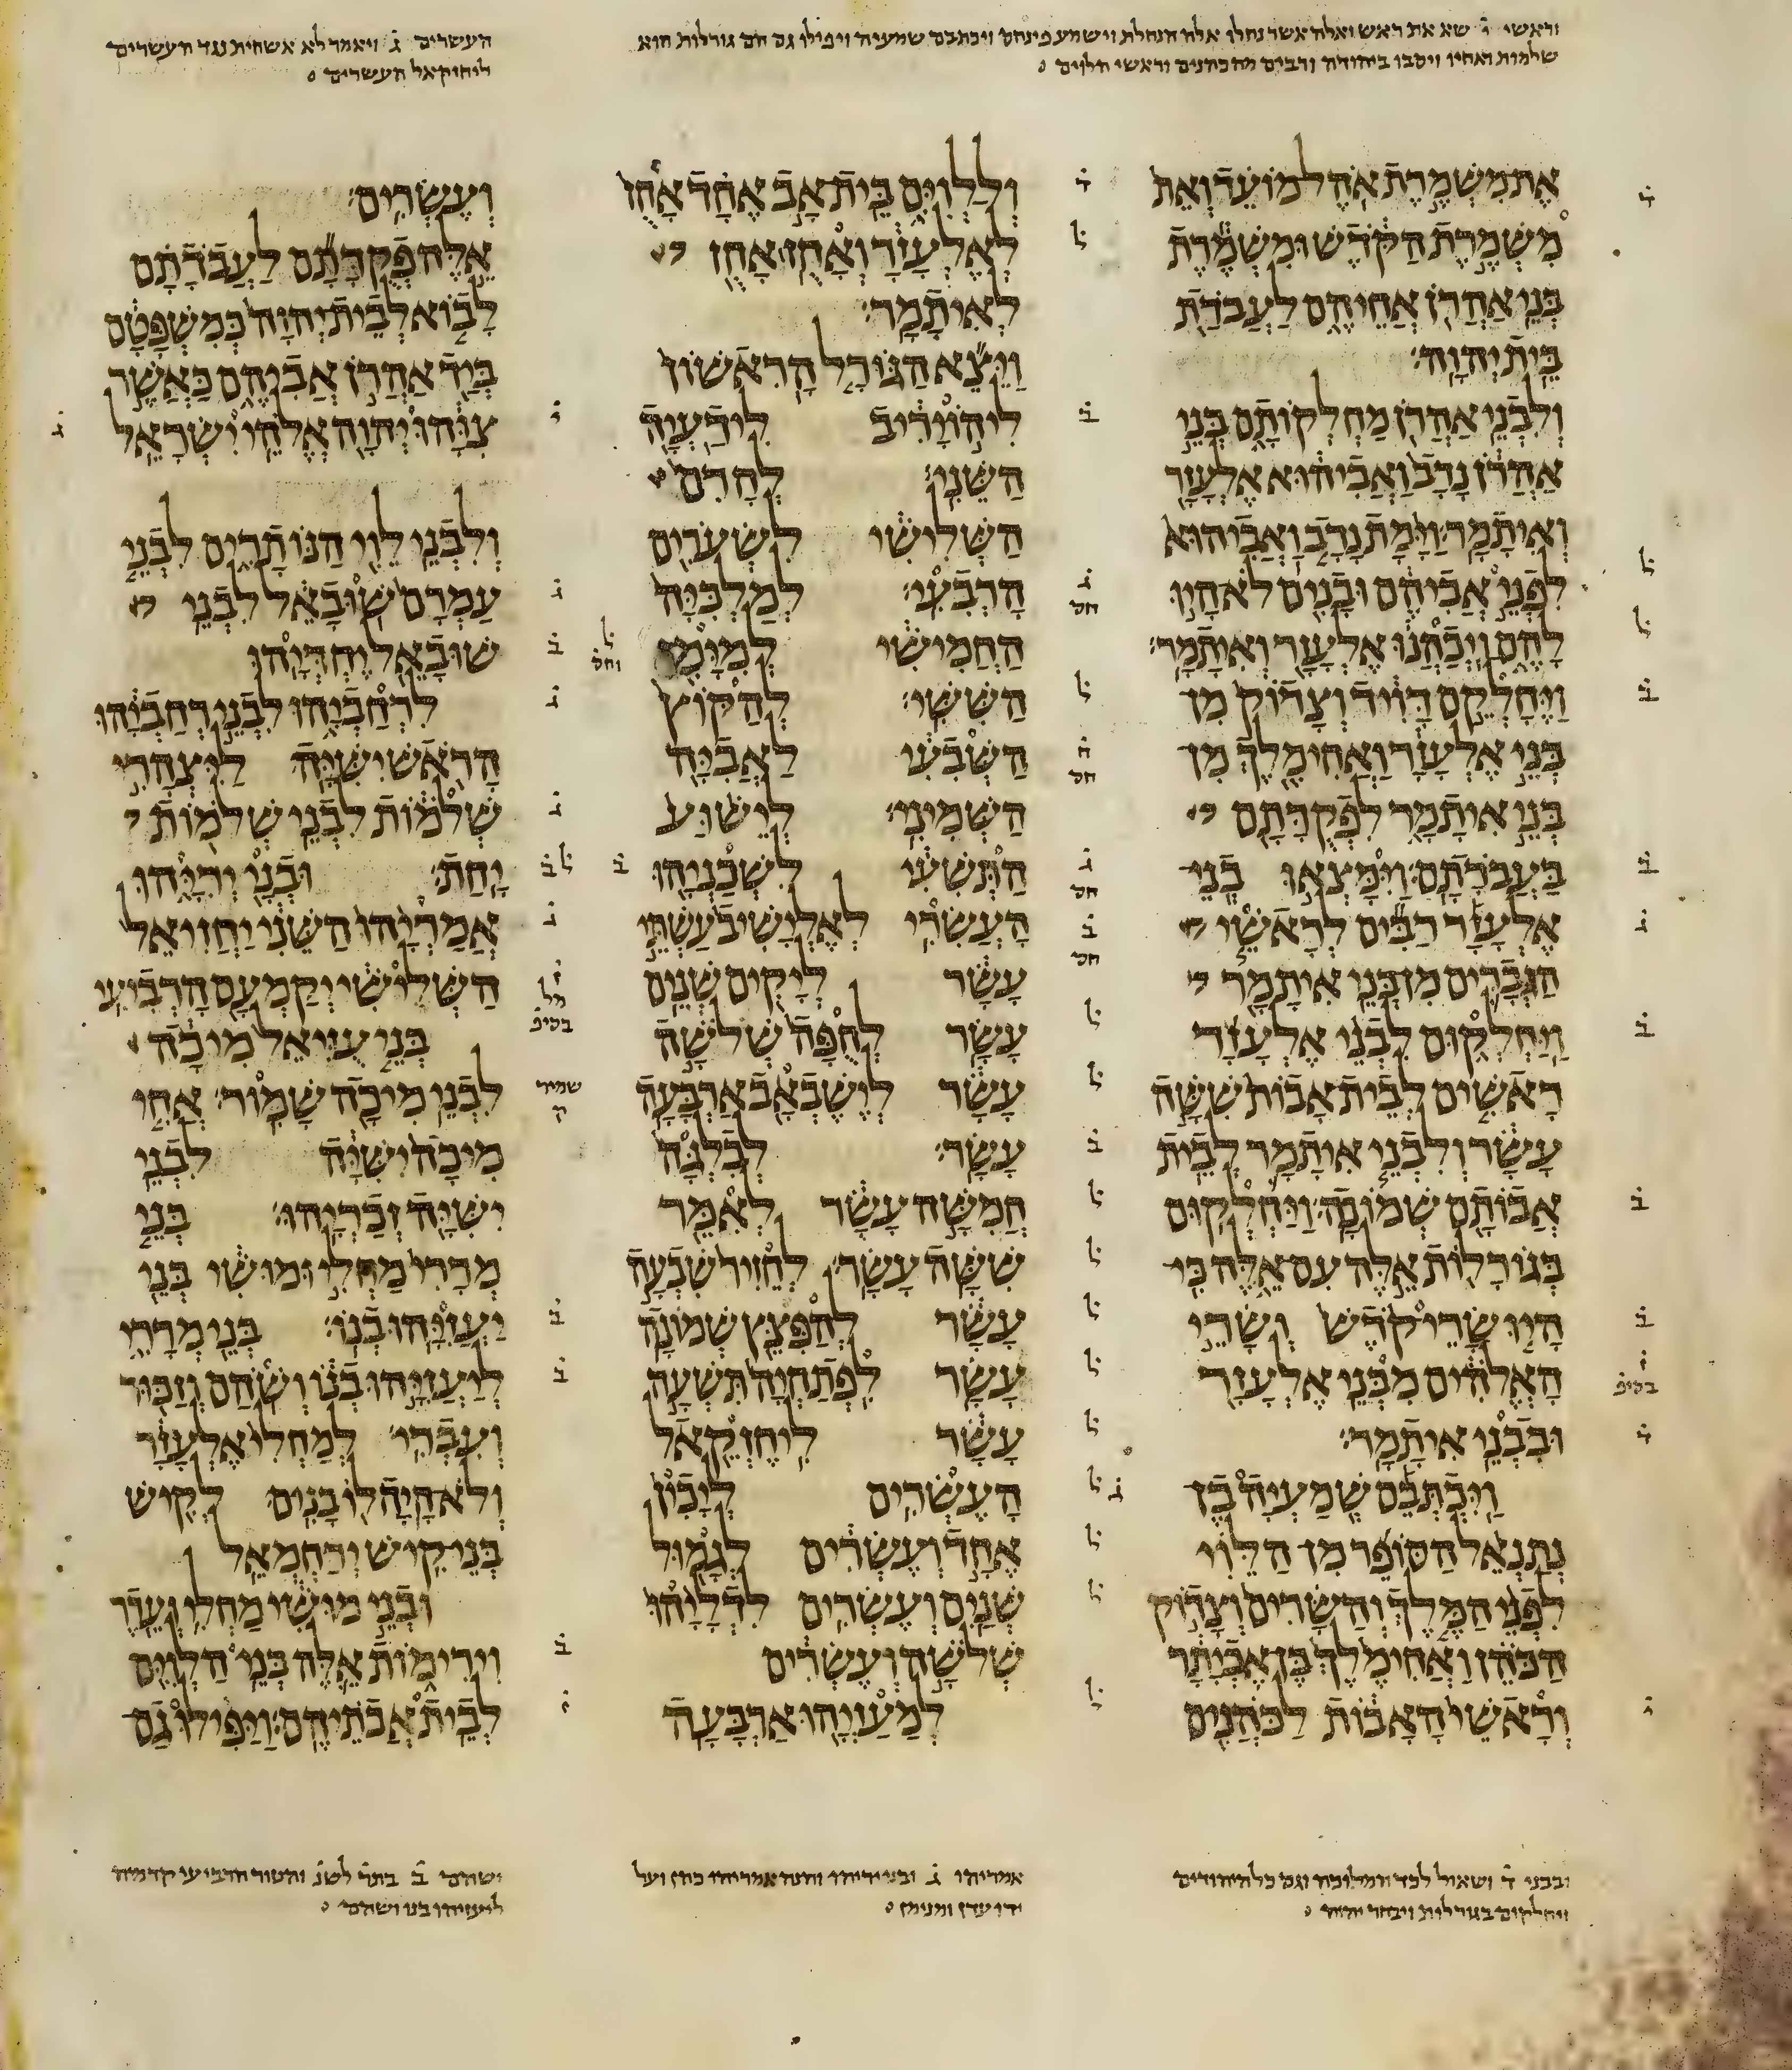 וראשי י שא את ראש ואלה אשר נחלו אלה הנחלת וישמע פינחס ויכתבם שמעיה ויפילו גם הם גורלות הוא
שלמות ואחיו ויסבו ביהודה ורבים מהכהנים וראשי הלוים
העשרים ג ויאמר לא אשחית נגד העשרים
ליחזקאל העשרים
את משמרת אהל מועד ואת
משמרת הקדש ומשמרת
בני אהרן אחיהם לעבדת
בית יהוה׃
ולבני אהרן מחלקותם בני
אהרן נדב ואביהוא אלעזר
ואיתמר׃ וימת נדב ואביהוא
לפני אביהם ובנים לא היו
להם ויכהנו אלעזר ואיתמר׃
ויחלקם דויד וצדוק מן
בני אלעזר ואחימלך מן
בני איתמר לפקדתם
בעבדתם׃ וימצאו בני
אלעזר רבים לראשי
הגברים מן בני איתמר
ויחלקום לבני אלעזר
ראשים לבית אבות ששה
עשר ולבני איתמר לבית
אבותם שמונה׃ ויחלקום
בגורלות אלה עם אלה כי
היו שרי קדש ושרי
האלהים מבני אלעזר
ובבני איתמר׃
ויכתבם שמעיה בן
נתנאל הסופר מן הלוי
לפני המלך והשרים וצדוק
הכהן ואחימלך בן אביתר
וראשי האבות לכהנים
וללוים בית אב אחד אחז
לאלעזר ואחז אחז
לאיתמר׃
ויצא הגורל הראשון
ליהויריב לידעיה
השני׃ לחרם
השלישי לשערים
הרבעי׃ למלכיה
החמישי למימן
הששי׃ להקוץ
השבעי לאביה
השמיני׃ לישוע
התשעי לשכניהו
העשרי׃ לאלישיב עשתי
עשר ליקים שנים
עשר לחפה שלשה
עשר לישבאב ארבעה
עשר׃ לבלגה
חמשה עשר לאמר
ששה עשר׃ לחזיר שבעה
עשר להפצץ שמונה
עשר לפתחיה תשעה
עשר ליחזקאל
העשרים ליכין
אחד ועשרים לגמול
שנים ועשרים לדליהו
שלשה ועשרים
למעזיהו ארבעה
ועשרים׃
אלה פקדתם לעבדתם
לבוא לבית יהוה כמשפטם
ביד אהרן אביהם כאשר
צוהו יהוה אלהי ישראל
ולבני לוי הנותרים לבני
עמרם שובאל לבני
שובאל יחדיהו
לרחביהו לבני רחביהו
הראש ישיה ליצהרי
שלמות לבני שלמות
יחת׃ ובני יריהו
אמריהו השני יחזיאל
השלישי יקמעם הרביעי
בני עזיאל מיכה
לבני מיכה שמור׃ אחי
מיכה ישיה לבני
ישיה זכריהו׃ בני
מררי מחלי ומושי בני
יעזיהו בנו׃ בני מררי
ליעזיהו בנו ושהם וזכור
ועברי׃ למחלי אלעזר
ולא היה לו בנים לקיש
בני קיש ירחמאל
ובני מושי מחלי ועדר
וירימות אלה בני הלוים
לבית אבתיהם׃ ויפילו גם
ובבני ד ושאול לכד המלוכה וגם כל היהודים
ויחלקום בגורלות ויבחר יהוה
אמריהו ג ובני יריהו והנה אמריהו כהן ועל
ידו עדן ומנימן
ושהם ב בתר לשנ והטור הרביעי קדמיה
ליעזיהו בנו ושהם